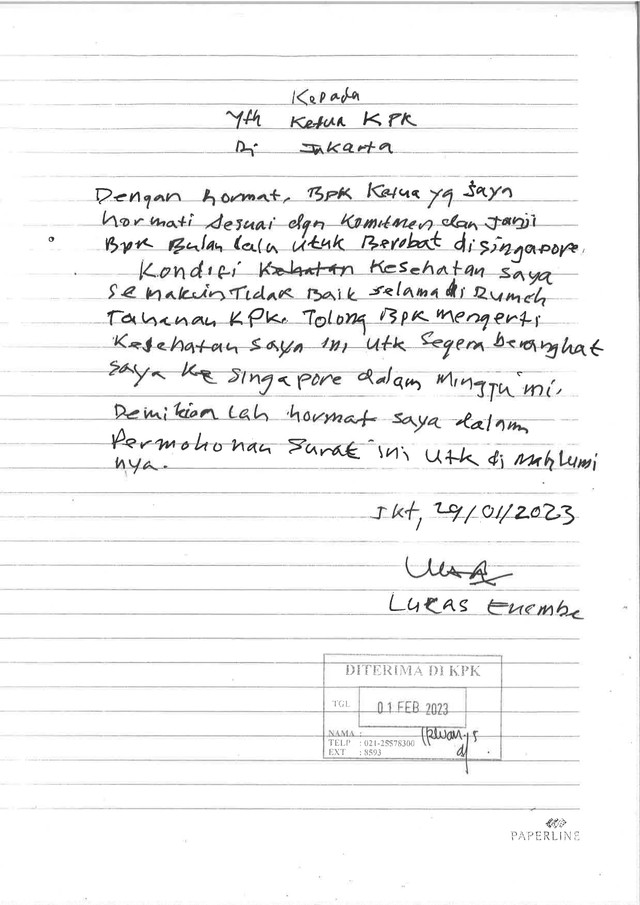 Kepada
Yth Ketua KPK
Di Jakarta
Dengan hormat, BPK Ketua yg saya
hormati sesuai dgn komitmen dan janji
Bpk Bulan lalu utuk Berobat disingapore.
Kondisi Kehatan Kesehatan saya
semakuin Tidak Baik selama di Rumeh
Tahanan KPK. Tolong BPK mengerti
Kesehatan saya ini utk segera berangkat
saya ke singapore dalam minggu ini.
Demikian lah hormat saya dalam
Permohonan surat ini utk di mahlumi
nya.
Jkt, 29/01/2023
Lukas Enembe
DITERIMA DI KPK
TGL 01 FEB 2023
NAMA :
TELP : 021-25578300
EXT : 8593
PAPERLINE